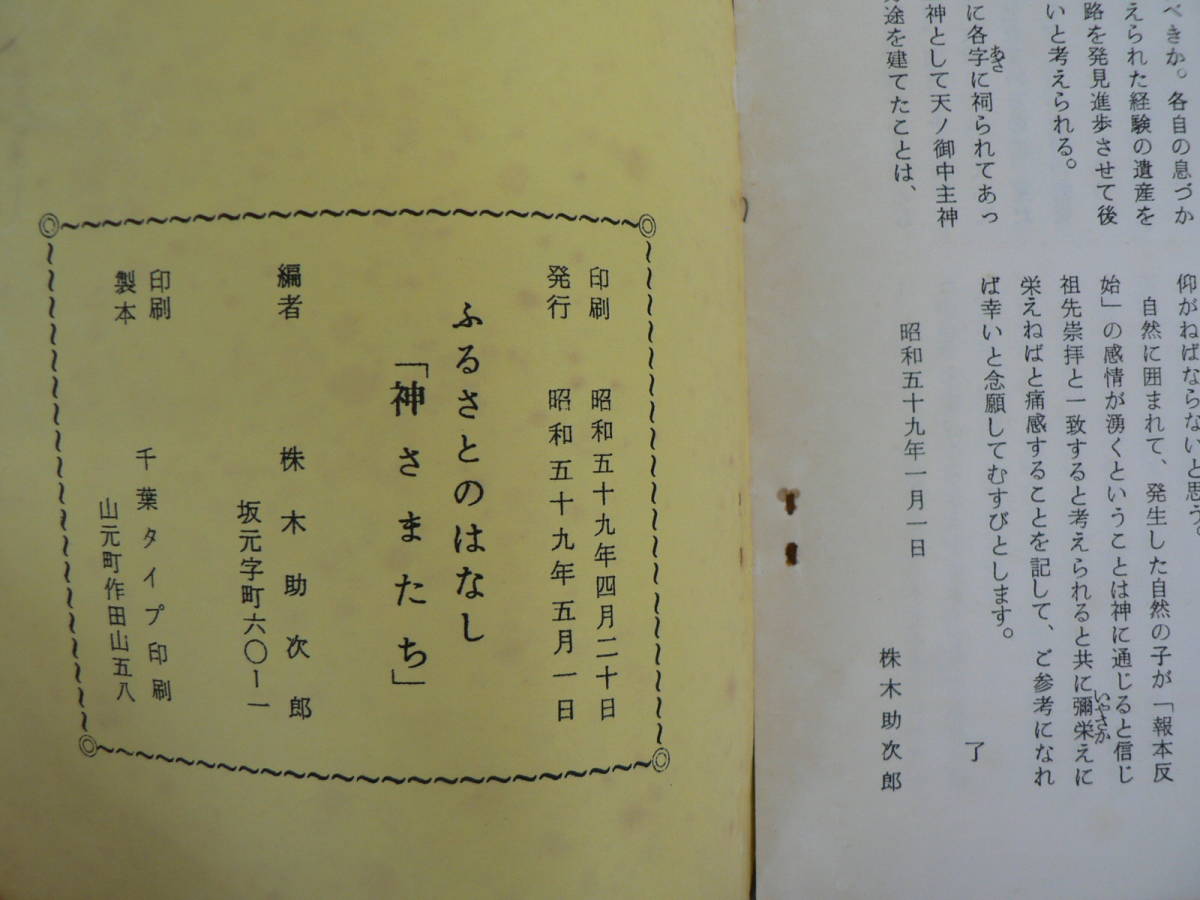 べきか。各自の息づか
えられた経験の遺産を
路を発見進歩させて後
いと考えられる。
に各字に祠られてあっ
あざ
神として天ノ御中主神
途を建てたことは、
仰がねばならないと思う。
自然に囲まれて、発生した自然の子が「報本反
始」の感情が湧くということは神に通じると信じ
祖先崇拝と一致すると考えられると共に彌栄えに
いやさか
栄えねばと痛感することを記して、ご参考になれ
ば幸いと念願してむすびとします。
了
昭和五十九年一月一日
株木助次郎
印刷 昭和五十九年四月二十日
発行 昭和五十九年五月一日
ふるさとのはなし
「神さまたち」
編者 株木助次郎
坂元字町六〇ー一
印刷
製本
千葉タイプ印刷
山元町作田山五八